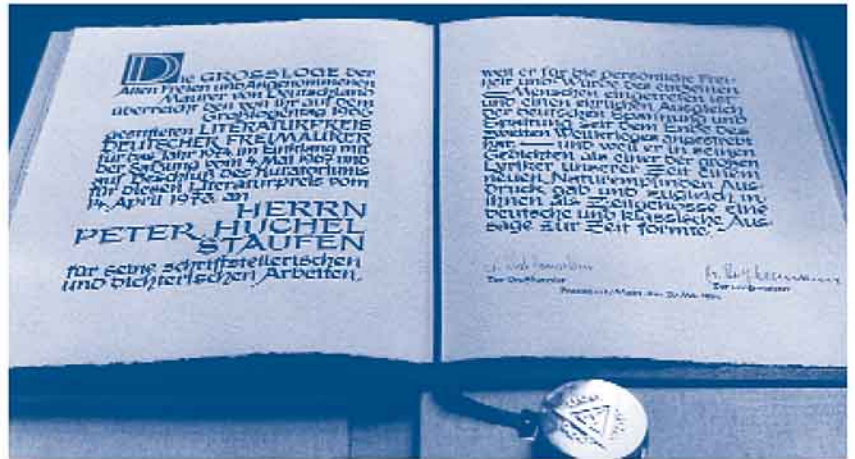 Die GROSSLOGE der
Alten Freien und Angenommenen
Maurer von Deutschland
überreicht den von ihr auf dem
Großlogentag 1966
gestifteten LITERATURPREIS
DEUTSCHER FREIMAURER
für das Jahr 1974 im Einklang mit
der Satzung vom 4. Mai 1967 und
auf Beschluß des Kuratoriums
für diesen Literaturpreis vom
14. April 1973 an
HERRN
PETER HUCHEL
STAUFEN
für seine schriftstellerischen
und dichterischen Arbeiten,
weil er für die persönliche Frei-
heit und Würde des einzelnen
Menschen eingetreten ist
und einen ehrlichen Ausgleich
der deutschen Spannung und
Spaltung seit dem Ende des
zweiten Weltkrieges angestrebt
hat — und weil er in seinen
Gedichten als einer der großen
Lyriker unserer Zeit einem
neuen Naturempfinden Aus-
druck gab und zugleich in
ihnen als Zeitgenosse eine
deutsche und klassische Aus-
sage zur Zeit formte.
Der Großmeister